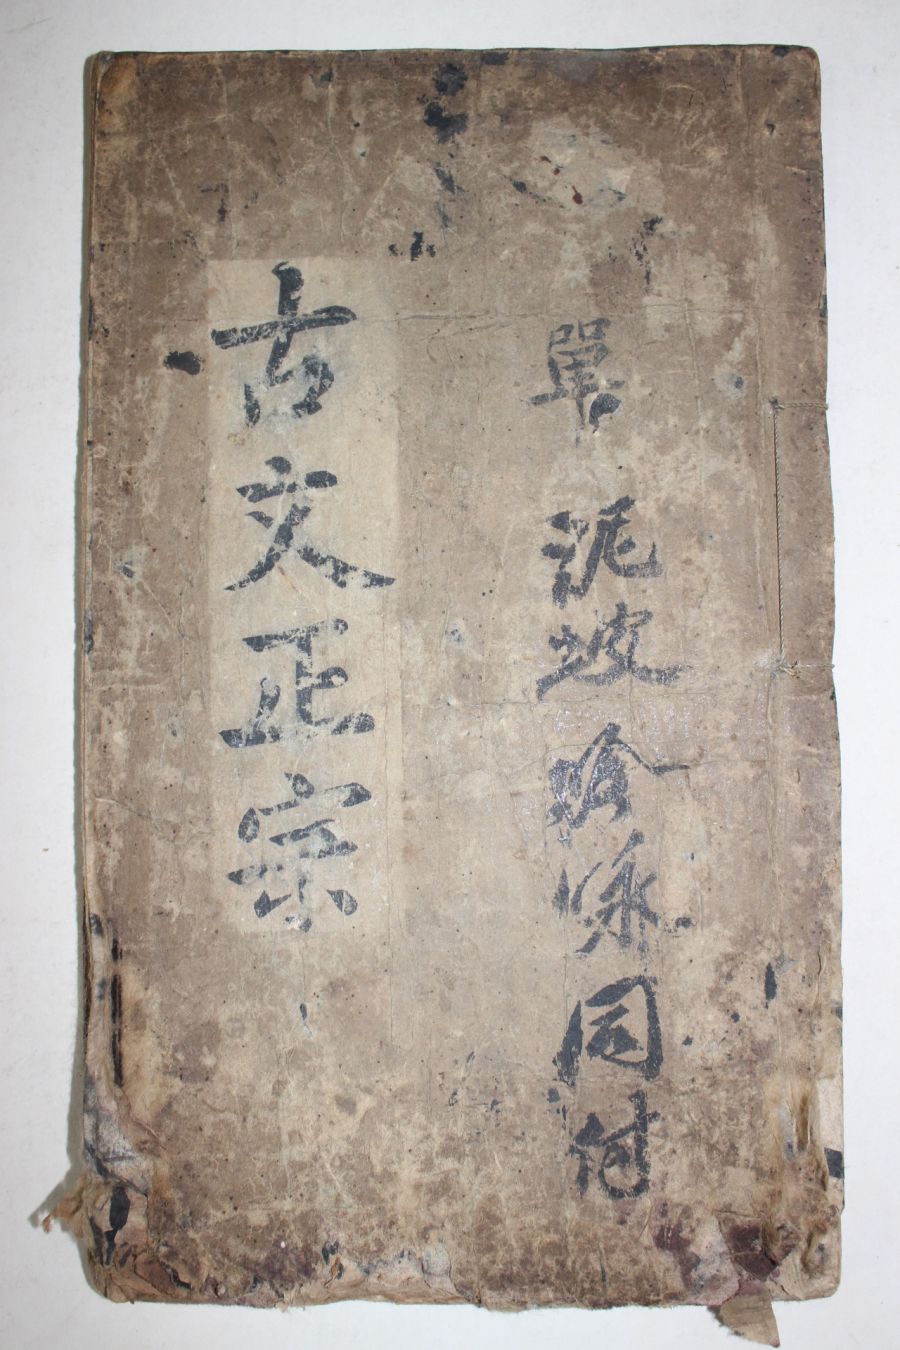 單 泥坡唫咏同付
古文正宗